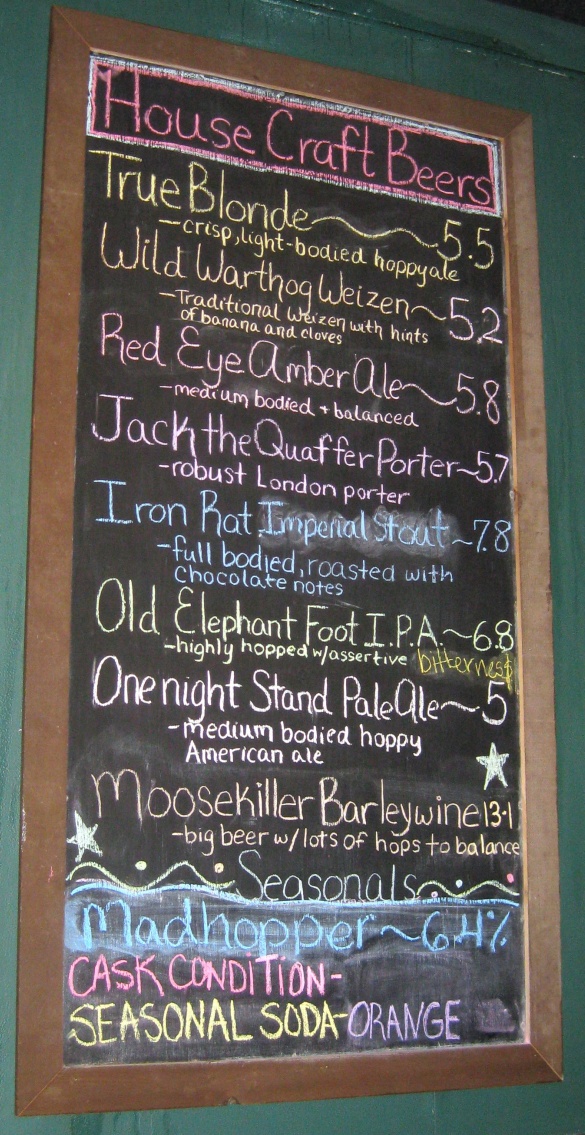 House Craft Beers
True Blonde 5.5
-crisp, light-bodied hoppy ale
Wild Warthog Weizen~5.2
-Traditional Weizen with hints
of banana and cloves
Red Eye Amber Ale~5.8
-medium bodied + balanced
Jack the Quaffer Porter~5.7
-robust London porter
Iron Rat Imperial Stout~7.8
-full bodied, roasted with
Chocolate notes
Old Elephant Foot I.P.A.~6.8
-highly hopped w/assertive bitterness
One night Stand Pale Ale~5
-medium bodied hoppy
American ale
Moosekiller Barleywine 13-1
-big beer w/lots of hops to balance
Seasonals
Madhopper~6.4%
CASK CONDITION-
SEASONAL SODA-ORANGE